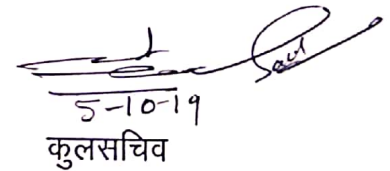 5-10-19
कुलसचिव